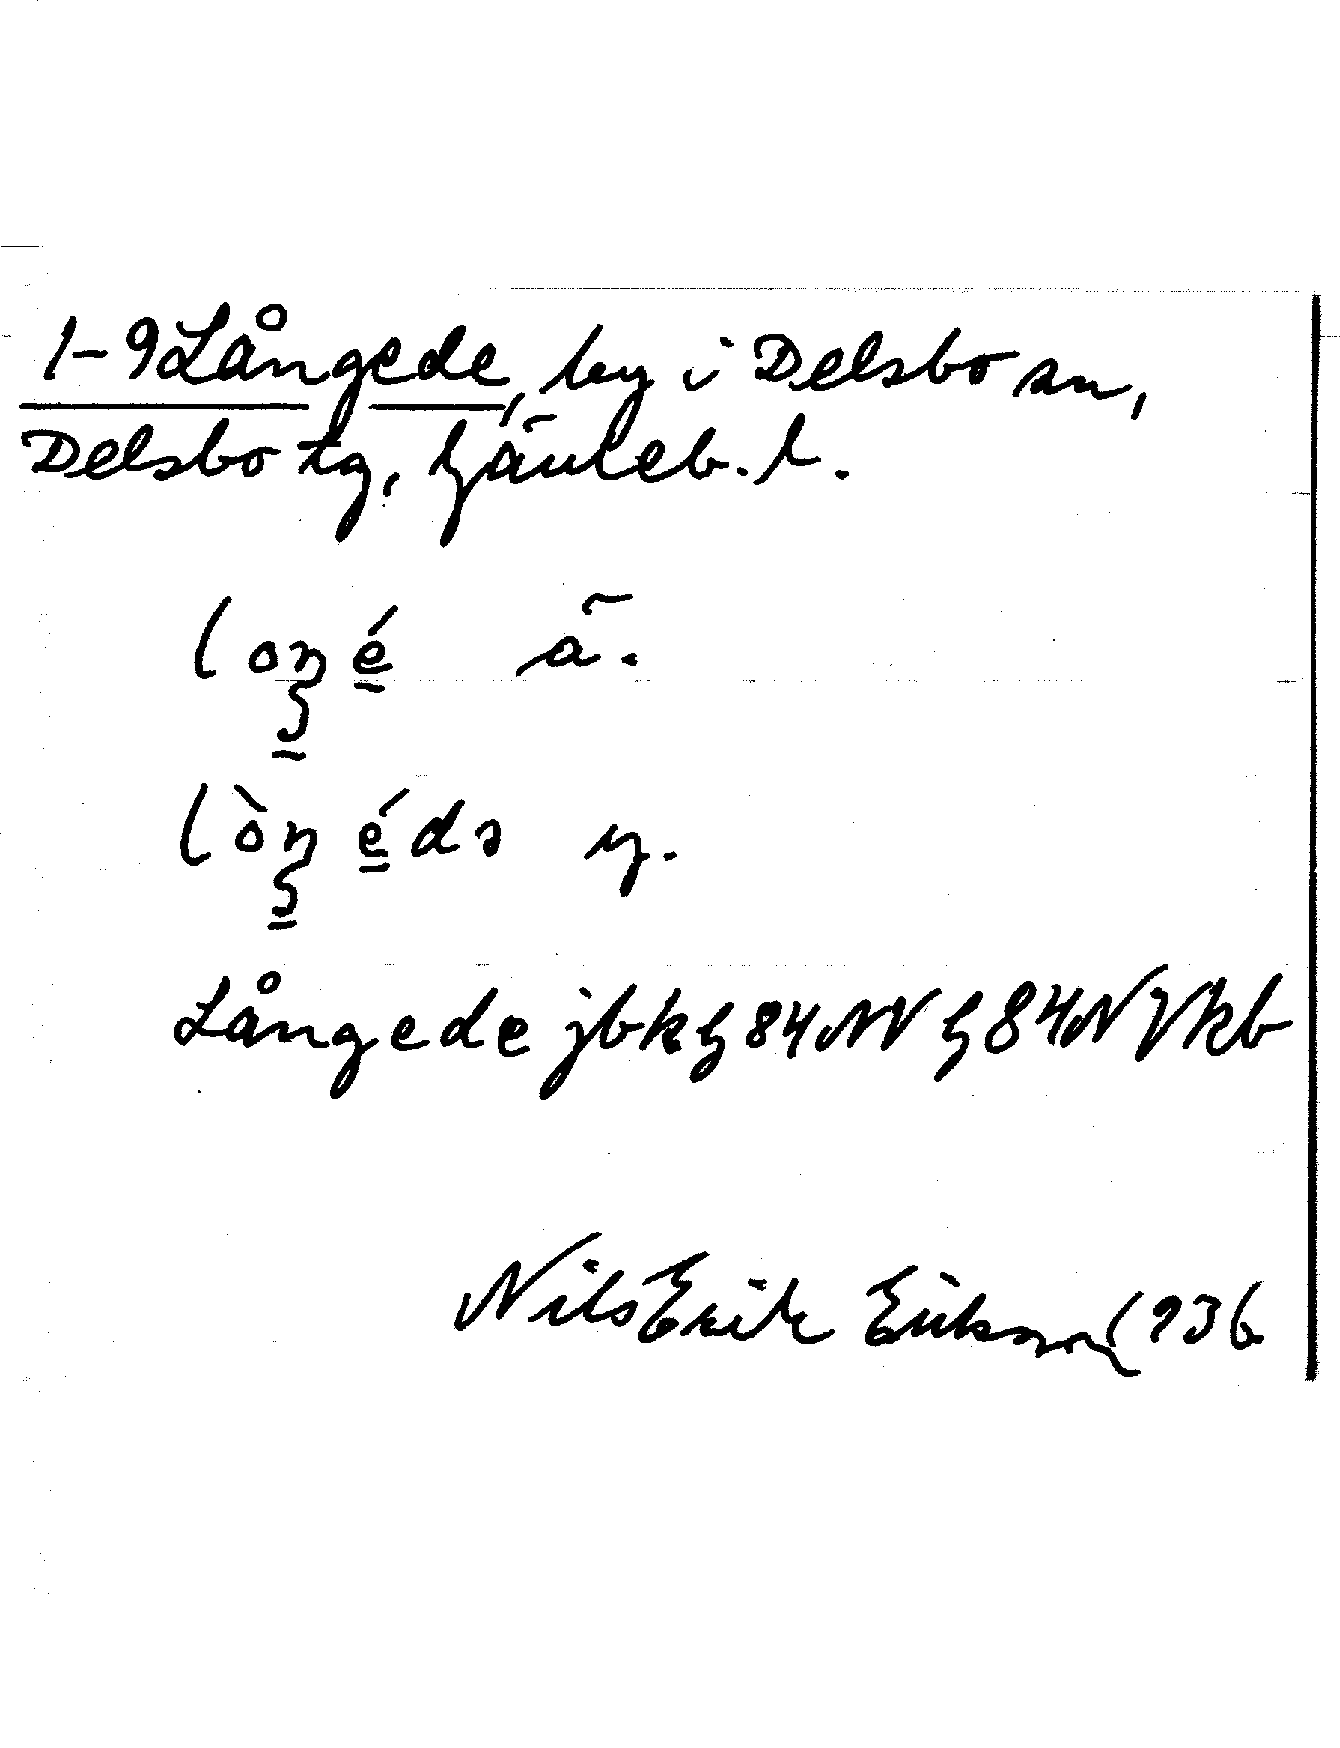 1-9 Långede, by i Delsbo sn,
Delsbo tg, Gävleb. l.
ä.
y.
Långede jbkg 84 NV g 84 NV kb
Nils Erik Erikson 1936